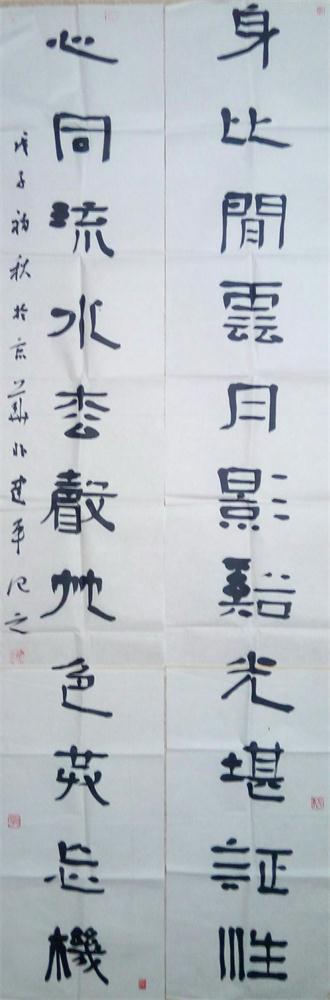 身比閒雲月影谿光堪証性
心同流水枩聲艸色共忘機
戊子初秋於京華建平记之